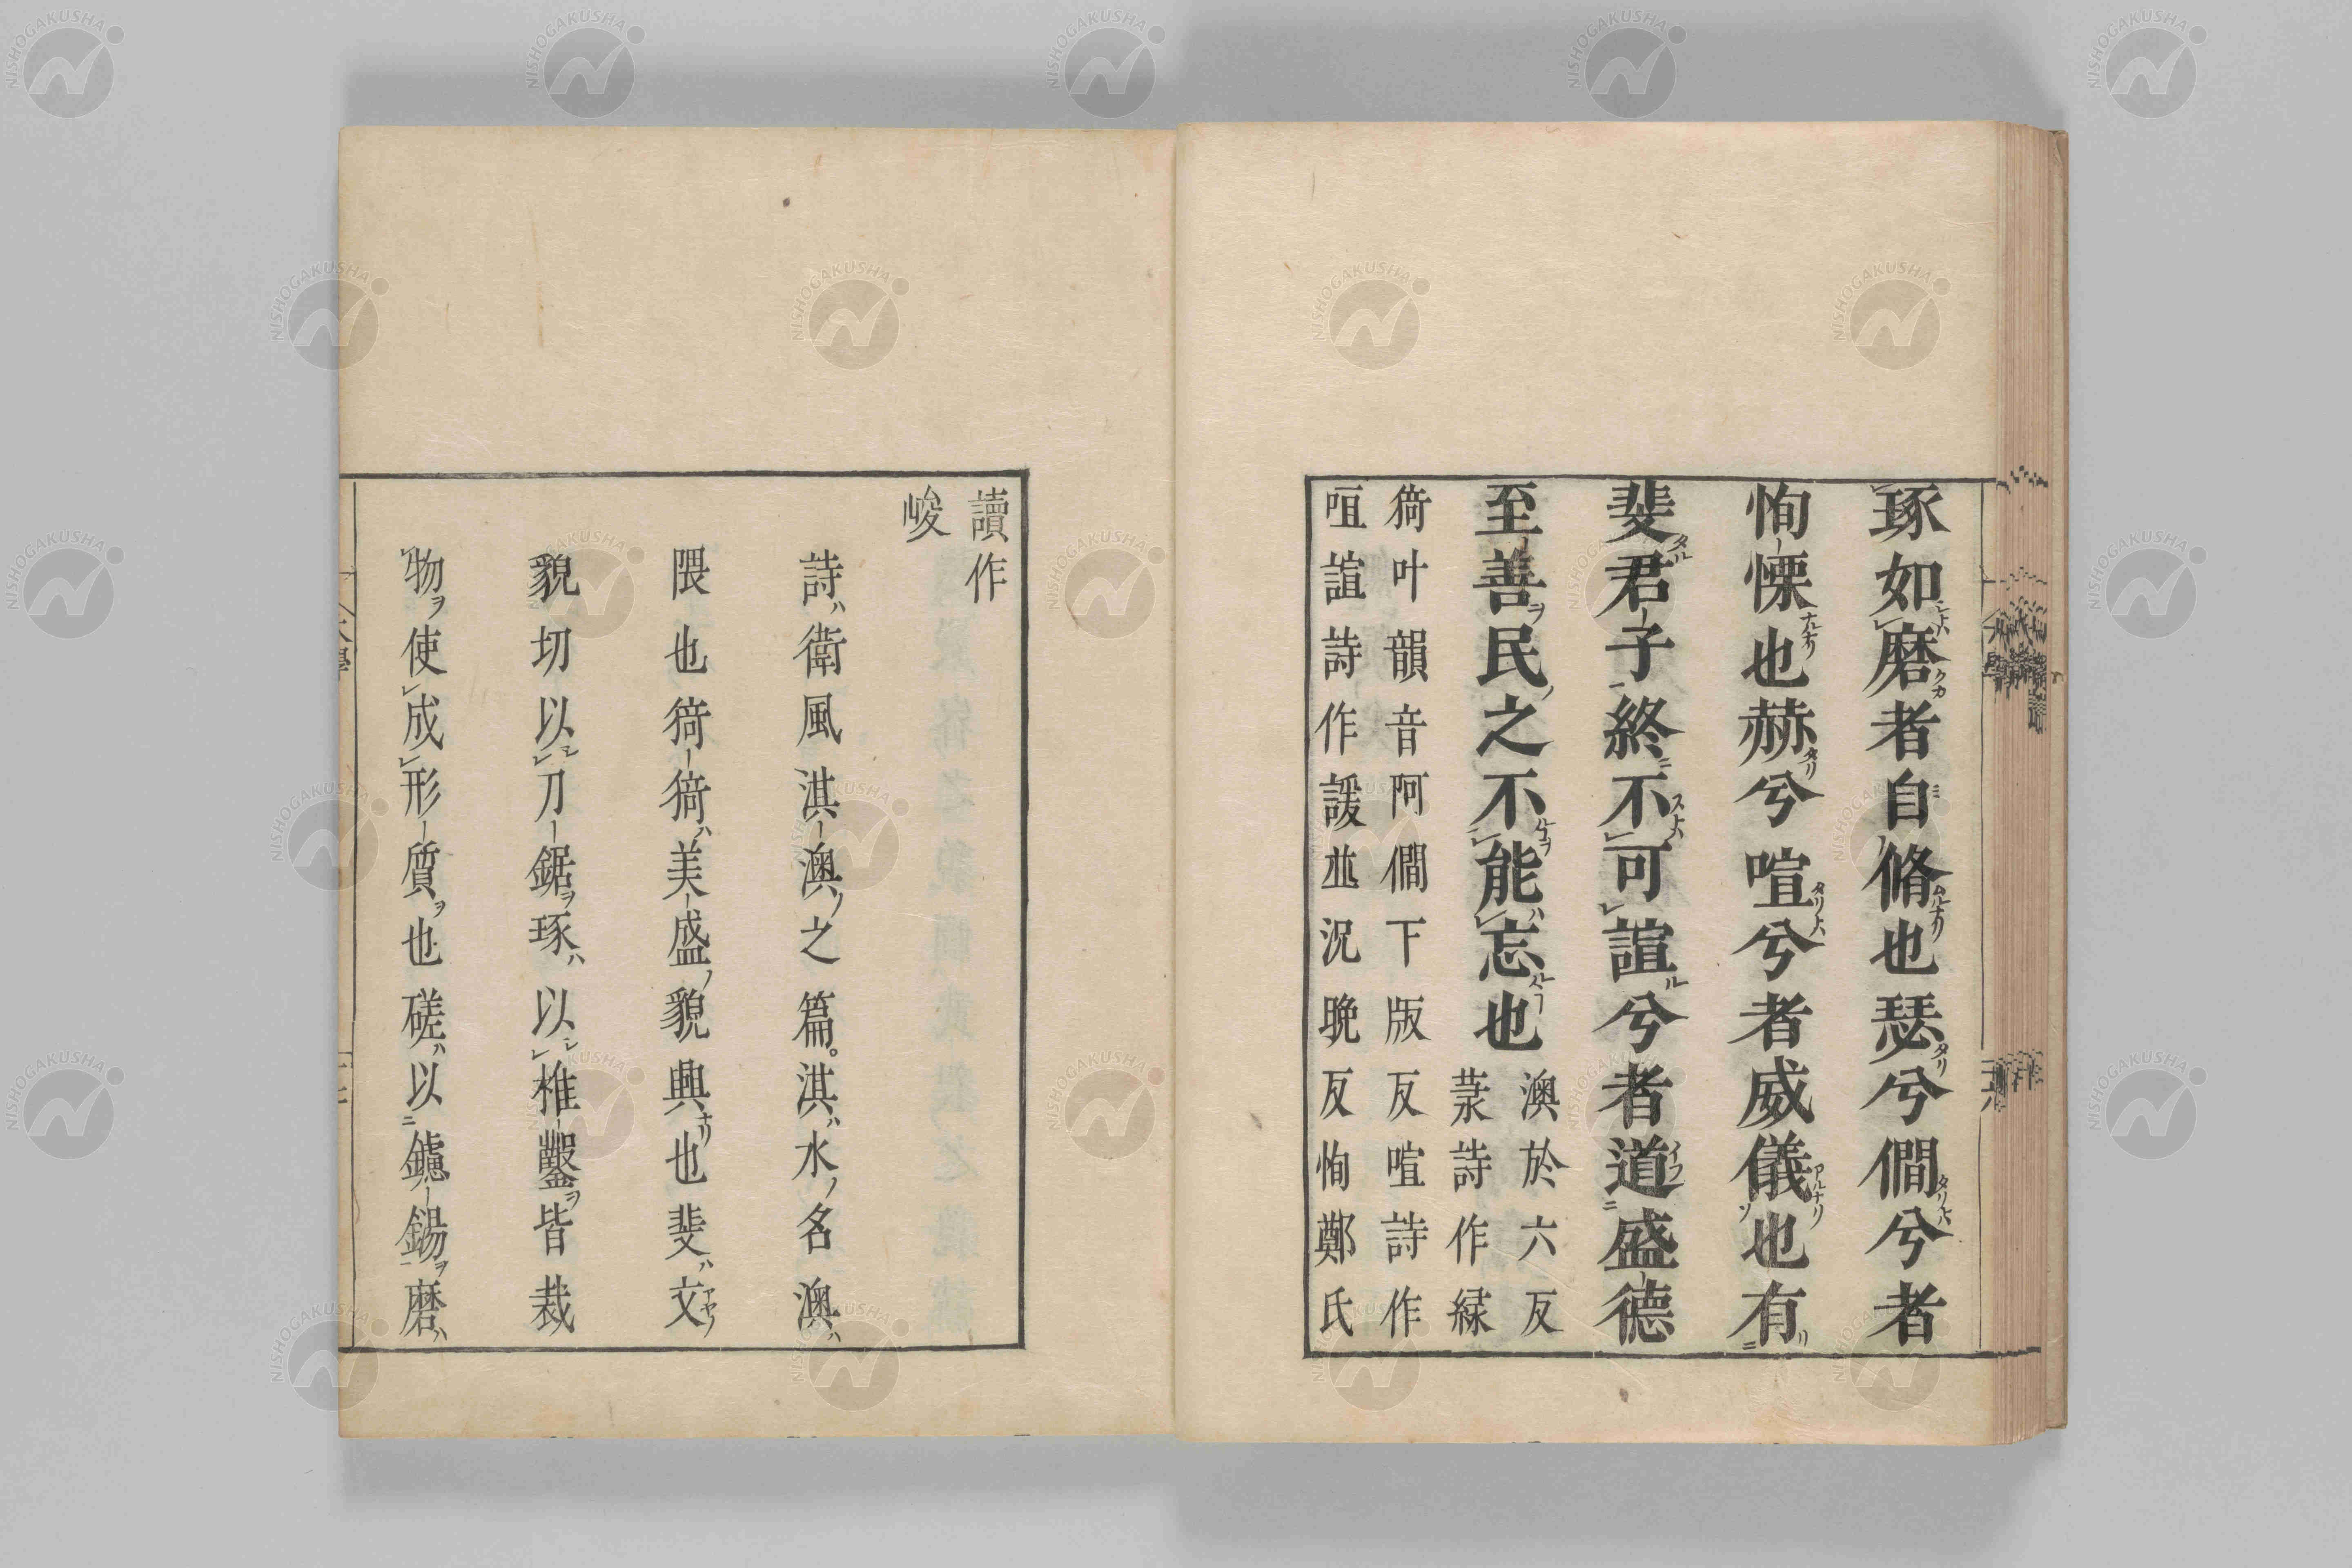 琢如磨者自脩也瑟兮僩兮者
恂慄也赫兮喧兮者威儀也有
斐君子終不可諠兮者道盛德
至善民之不能忘也
澳於六反
菉詩作綠
猗叶韻音阿僩下版反喧詩作
咺諠詩作諼並況晚反恂鄭氏
讀作
峻
詩衛風淇澳之篇。淇水名澳
隈也猗猗美盛貌興也斐文
貌切以刀鋸琢以椎鑿皆裁
物使成形質也磋以鑢鐋磨
大學
NISHOGAKUSHA